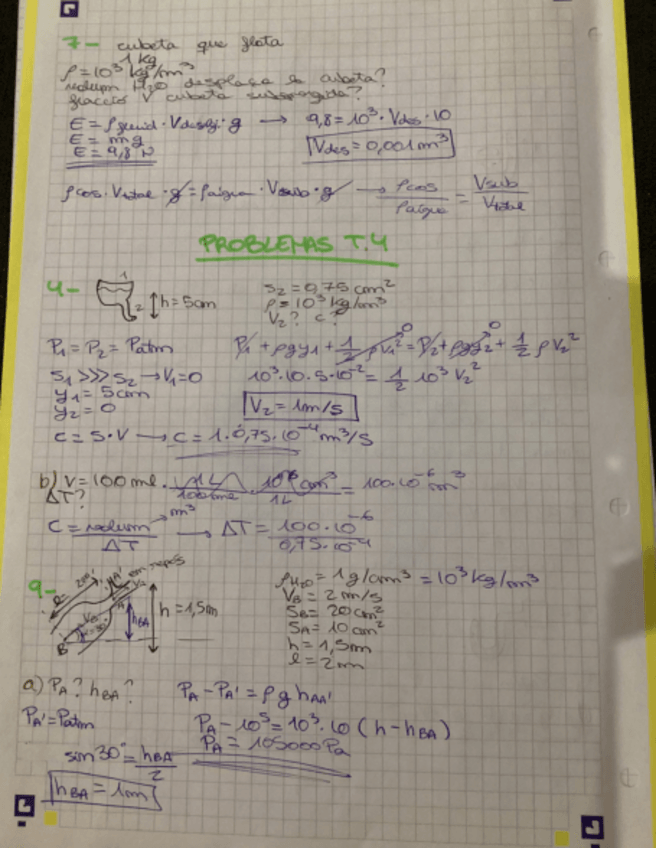 7- cubeta que flota
1 kg
ρ = 10³ kg/m³
volum H₂O desplaça la cubeta?
fracció V cubeta submergida?
E = ρfluid · Vdesploj · g → 9,8 = 10³ · Vdes · 10
E = mg
E = 9,8 N
Vdes = 0,001 m³
ρcos · Vtotal · g = ρaigua · Vsub · g → ρcos / ρaigua = Vsub / Vtotal
PROBLEMAS T.4
4-
1
2
h = 5cm
S₂ = 0,75 cm²
ρ = 10³ kg/m³
V₂? c?
P₁ = P₂ = Patm
P₁ + ρgy₁ + 1/2 ρV₁² = P₂ + ρgy₂ + 1/2 ρV₂²
0
0
S₁ >>> S₂ → V₁ = 0
10³ · 10 · 5 · 10⁻² = 1/2 10³ V₂²
y₁ = 5cm
y₂ = 0
V₂ = 1m/s
C = S · V → C = 1 · 0,75 · 10⁻⁴ m³/s
b) V = 100 ml · 1L / 1000ml · cm³ / 1L = 100 · 10⁻⁶ m³
ΔT?
C = volum → m³ / ΔT → ΔT = 100 · 10⁻⁶ / 0,75 · 10⁻⁴
9-
en repòs
h = 1,5m
hBA
A
B
ρH₂O = 1 g/cm³ = 10³ kg/m³
VB = 2 m/s
SB = 20 cm²
SA = 10 cm²
h = 1,5m
l = 2m
a) PA? hBA?
PA - PA' = ρ g hAA'
PA' = Patm
PA - 10⁵ = 10³ · 10 (h - hBA)
PA = 105000 Pa
sin 30° = hBA / 2
hBA = 1m